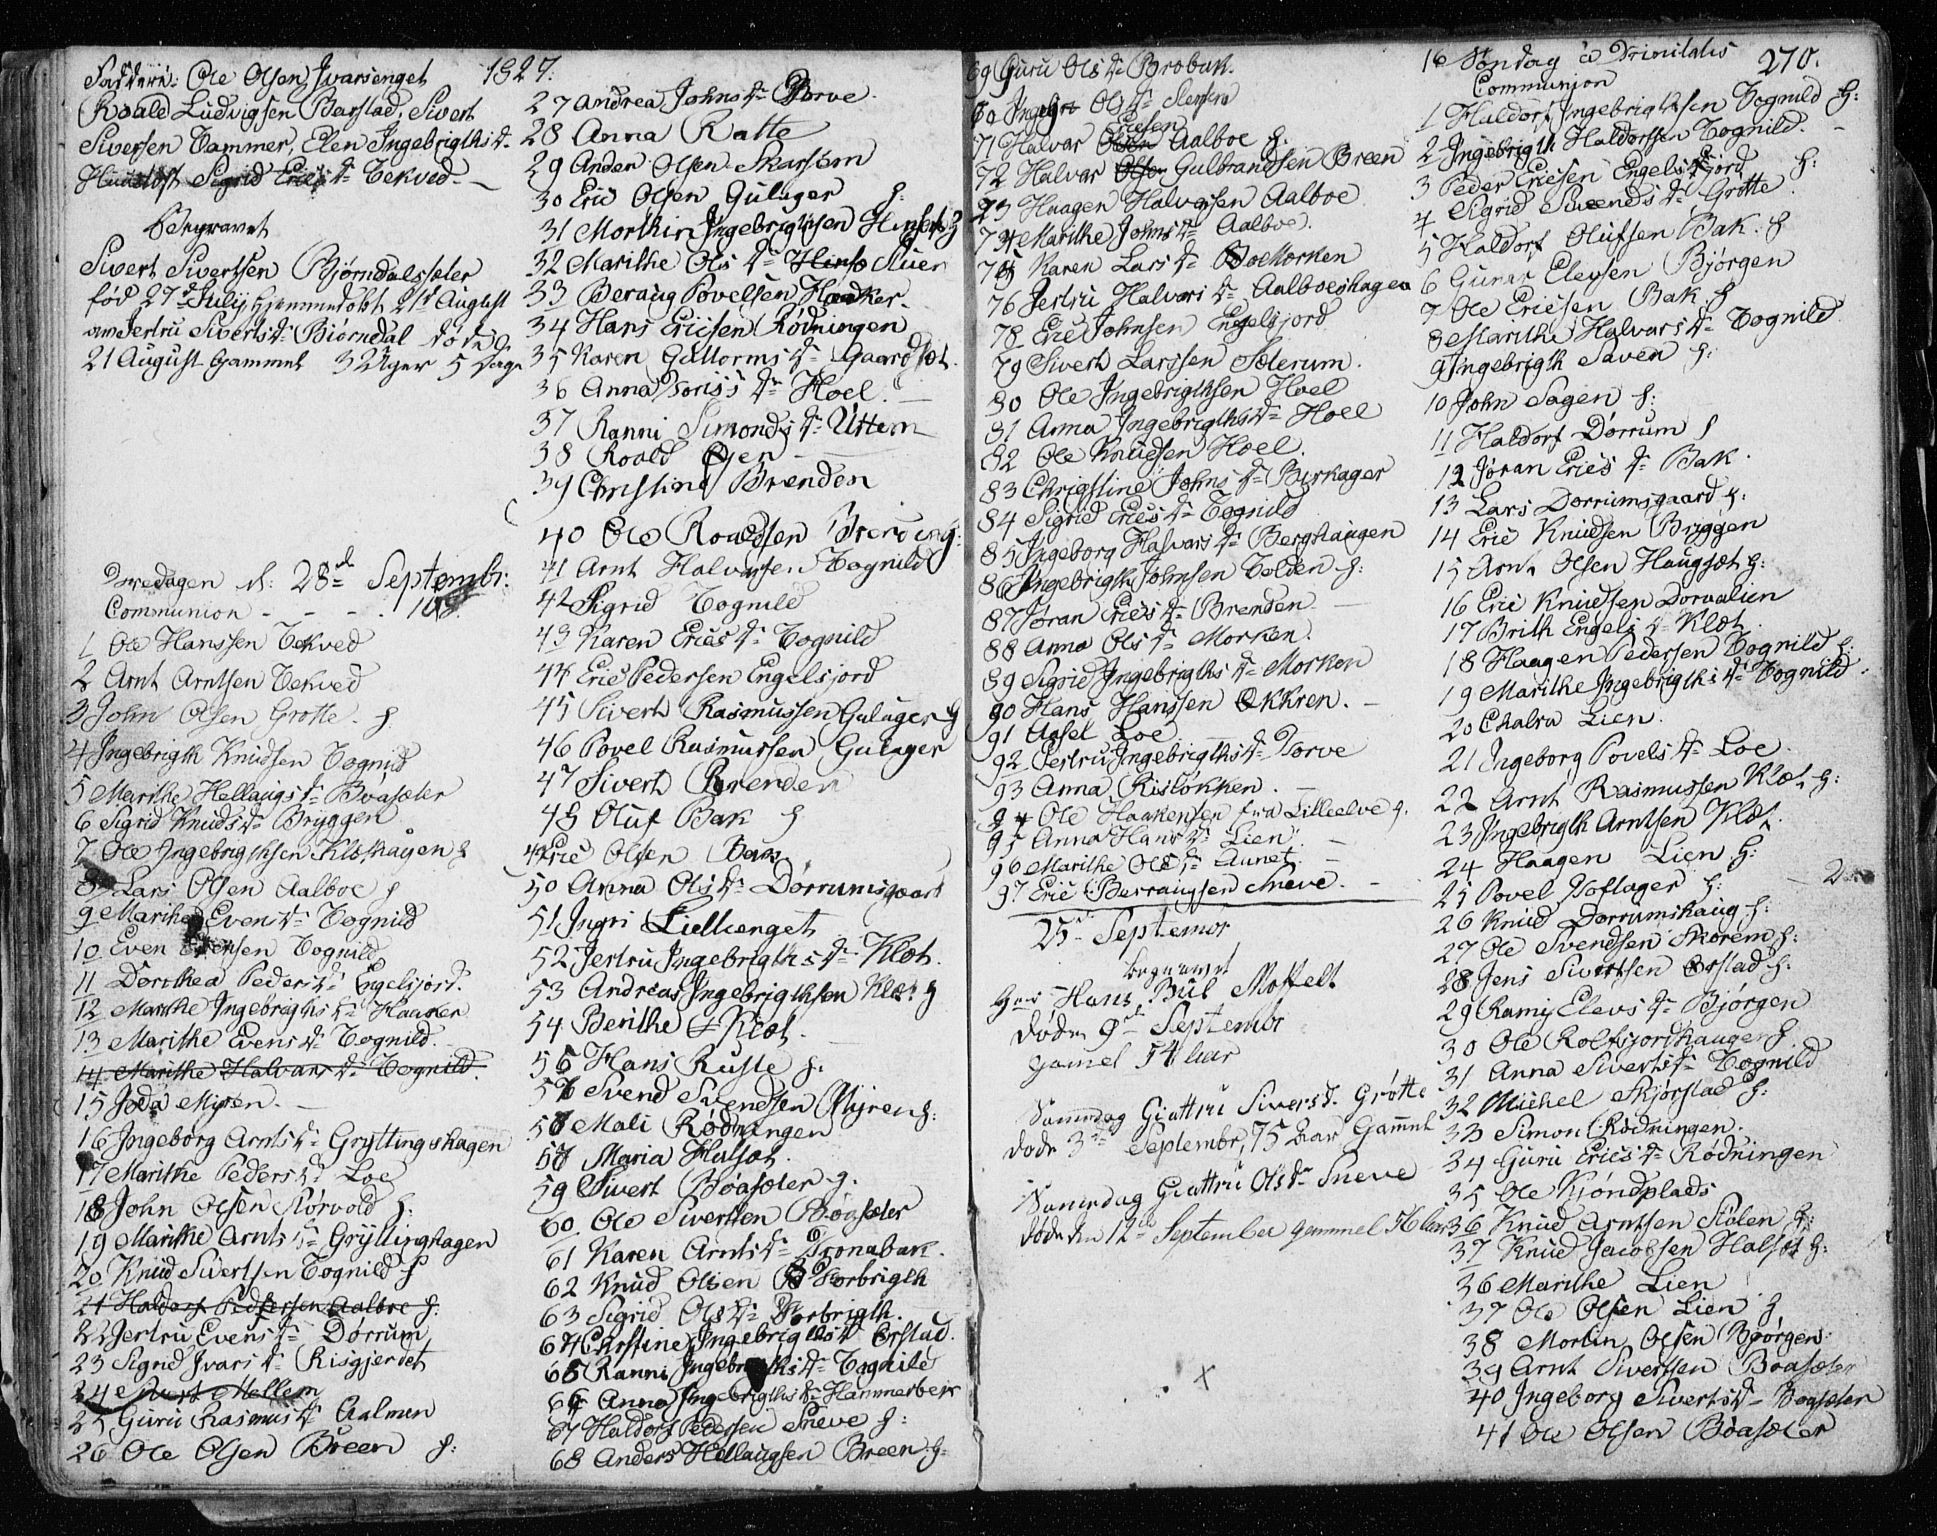 1827.
Fadderé: Ole Olsen Ivarsenget
Roald Ludvigsen Barstad, Sivert
Siversen Hammer, Elen Ingebrigths dr
Sigrid Erics dr Tekved
Begravet
Sivert Sivertsen Bjørndalssæter
fød 27d July hjemmedøbt 21d August
av Jertru Siverts dr Biørndal død d.
21 August Gammel 3 Uger 5 Dage
d: 28de Septembr.
Communion - - - 103.
1 Ole Hanssen Tekved
2 Arnt Arntsen Tekved
3 John Olsen Grotte. h
4 Ingebrigth Knudsen Tognild
5 Marithe Hellaugs dr Bøasæter
6 Sigrid Knuds dr Bryggen
7 Ole Ingebrigthsen Kløthagen h
8 Lars Olsen Aalboe h
9 Marithe Evens dr Tognild
10 Even Tognild
11 Dorthea Peders dr Engelsjord.
12 Marithe Ingebrigths dr Haaker
13 Marithe Evens dr Tognild.
14 Marithe Halvars dr Tognild.
15 Joda Miøen. -
16 Ingeborg Arnts dr Gryttingshagen
17 Marithe Peders dr Loe
18 John Olsen Rørvold h:
19 Marithe Arnts dr Gryttinghagen
20 Knud Sivertsen Tognild h
21 Haldorf Pedersen Aalboe h:
22 Jertru Evens dr Dørrum
23 Sigrid Ivars dr Risgjerdet
24 Mellem
25 Guru Rasmus dr Aalmen
26 Ole Olsen Breen h:
27 Andrea Johns dr Torve
28 Anna Ratte
29 Ander Olsen Skarsem
30 Eric Olsen Gulager h:
31 Morthin Ingebrigthsen h
32 Marithe Ols dr
33 Beraug Povelsen Haaker
34 Hans Ericsen Rødningen
35 Karen Guttorms dr
36 Anna dr Hoel. -
37 Ranni Simonds dr Uttem
38 Roald Øien
39 Christine Brenden
40 Ole Roaldsen Brenden h:
41 Arnt Halvorsen Tognild
42 Sigrid Tognild
43 Karen Erics dr Tognild
44 Eric Pedersen Engelsjord
45 Sivert Rasmussen Gulager h
46 Povel Rasmussen Gulager
47 Sivert Brenden
48 Oluf Bak h
49 Eric Olsen
50 Anna Ols dr Dørrumsgaard
51 Ingri Lillænget
52 Jertru Ingebrigths dr Klæt.
53 Andreas Ingebrigthsen Klæt h
54 Berithe Klæt.
55 Hans Ruste h:
56 Svend Svendsen Myren h:
58 Mali Rødningen
58 Maria Halsæt.
59 Sivert Bøasæter h.
60 Ole Sivertsen Bøasæter
61 Karen Arnts dr Tronabak.
62 Knud Olsen Horbrigth
63 Sigrid Ols dr Horbrigth.
64 Christine Ingebrigths dr Ørstad.
65 Ranni Ingebrigths dr Tognild
66 Anna Ingebrigths dr
67 Haldorf Pedersen Sneve h:
68 Anders Hellaugsen Breen. h:
69 Guru Ols dr Brobak.
60 Ingebor Ols dr
71 Halvar Olsen Ericsen Aalboe h:
72 Halvar Olsen Gulbrandsen Breen
73 Haagen Halvorsen Aalboe
74 Marithe Johns dr Aalboe.
75 Karen Lars dr Boemorken
76 Jertru Halvars dr Aalboeshagen
78 Eric Johnsen Engelsjord
79 Sivert Larssen Sæterum.
80 Ole Ingebrigthsen Hoel
81 Anna Ingebrigths dr Hoel
82 Ole Knudsen Hoel.
83 Christine Johns dr Birkager
84 Sigrid Erics dr Tognild
85 Ingeborg Halvars dr Berghaugen
86 Ingebrigth Johnsen Telden h:
87 Jøran Erics dr Brenden -
88 Anna Ols dr Morken.
89 Sigrid Ingebrigths dr Morken
90 Hans Hanssen Økkren. -
91 Aslet Loe
92 Jertru Ingebrigths dr Torve
93 Anna Risløkken. -
94 Ole Haakensen fra Lilleelve h.
95 Anna Hans dr Lien. -
96 Marithe Ols dr Aunet. -
97 Eric Berraugsen Sneve. -
25de Septembr
begravet
Hans Bul Moffelt
døde 9de Septembr
gamel 54 aar
Samedag Giattru Sivers d. Grøtte
døde 3de Septembr, 75 aar Gammel
Samedag Giattru Ols dr Sneve
døde den 12te September gammel 56 aar
270.
16 Søndag a Trinitatis
Communion
1 Haldorf Ingebrigthsen Tognild h:
2 Ingebrigth Haldorssen Tognild. -
3 Peder Ericsen Engelsfjord h:
4 Sigrid Svends dr Grotte.
5 Haldorf Olufsen Bak. h
6 Gunar Elevsen Bjørgen
7 Ole Ericsen Bak. h
8 Marithe Halvars dr Tognild
9 Ingebrigth Saven h:
10 John Sagen h:
11 Haldorf Dørrum h
12 Jøran Erics dr Bak.
13 Lars Dorrumsgaard h:
14 Eric Knudsen Bryggen
15 Arnt Olsen Haugsæt h:
16 Eric Knudsen Dorvalien
17 Brith Engels dr Klæt.
18 Haagen Pedersen Tognild h:
19 Marithe Ingebrigths dr Tognild.
20 Lien.
21 Ingeborg Povels dr Loe
22 Arnt Rasmussen Klæt, h:
23 Ingebrigth Arntsen Klæt.
24 Haagen Lien h:
25 Povel Toftager h:
26 Knud Dorrumshaug h:
27 Ole Svendsen Skorem h:
28 Jens Sivertsen Ørstad h:
29 Rami Elevs dr Bjørgen
30 Ole Rolfsjordhaugen h.
31 Anna Siverts dr Tognild
32 Michel Skjørstad h:
33 Simon Rødningen.
34 Guru Erics dr Rødningen
35 Ole Kjøndplads
36 Knud Arntsen h:
37 Knud Jacobsen Halsæt h:
36 Marithe Lien
37 Ole Olsen Lien h
38 Mortin Olsen Bjørgen
39 Arnt Sivertsen Bøasæter
40 Ingeborg Siverts dr Bøasæter
41 Ole Olsen Bøasæter